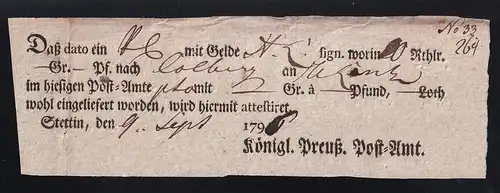 No 33
264
Daß dato ein mit Gelde sign. worin 20 Rthlr.
—Gr.— Pf. nach Colberg an
im hiesigen Post-Amte mit — Gr. à — Pfund, — Loth
wohl eingeliefert worden, wird hiermit attestiret.
Stettin, den 9. Sept 179
Königl. Preuß. Post-Amt.